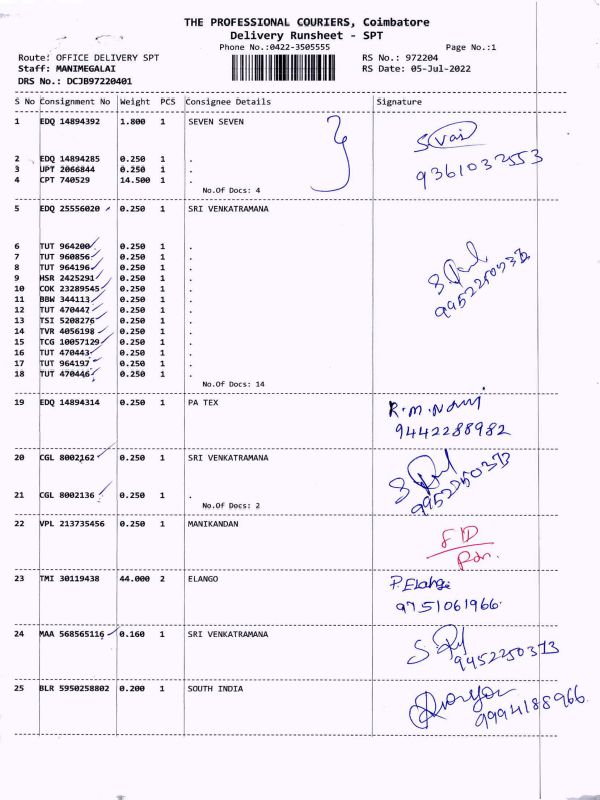 THE PROFESSIONAL COURIERS, Coimbatore
Delivery Runsheet - SPT
Phone No.:0422-3505555 Page No.:1
Route: OFFICE DELIVERY SPT RS No.: 972204
Staff: MANIMEGALAI RS Date: 05-Jul-2022
DRS No.: DCJB97220401
S No Consignment No Weight PCS Consignee Details Signature
1 EDQ 14894392 1.800 1 SEVEN SEVEN
2 EDQ 14894285 0.250 1 .
3 UPT 2066844 0.250 1 .
4 CPT 740529 14.500 1 .
9361032553
No.Of Docs: 4
5 EDQ 25556020 0.250 1 SRI VENKATRAMANA
6 TUT 964200 0.250 1 .
7 TUT 960856 0.250 1 .
8 TUT 964196 0.250 1 .
9 HSR 2425291 0.250 1 .
10 COK 23289545 0.250 1 .
11 BBW 344113 0.250 1 .
12 TUT 470447 0.250 1 .
13 TSI 5208276 0.250 1 .
14 TVR 4056198 0.250 1 .
15 TCG 10057129 0.250 1 .
16 TUT 470443 0.250 1 .
17 TUT 964197 0.250 1 .
18 TUT 470446 0.250 1 .
No.Of Docs: 14
19 EDQ 14894314 0.250 1 PA TEX
9442288982
20 CGL 8002162 0.250 1 SRI VENKATRAMANA
21 CGL 8002136 0.250 1 .
No.Of Docs: 2
22 VPL 213735456 0.250 1 MANIKANDAN
23 TMI 30119438 44.000 2 ELANGO P. Elango
9751061966.
24 MAA 568565116 0.160 1 SRI VENKATRAMANA
9952250373
25 BLR 5950258802 0.200 1 SOUTH INDIA
9994188966